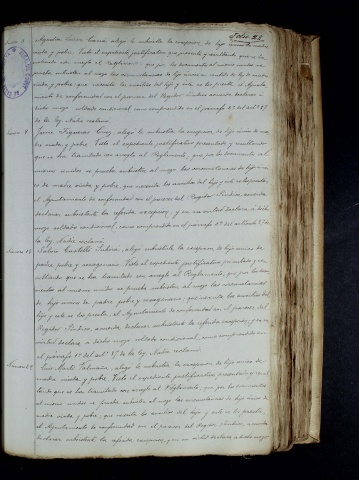 Folio 28.
de hijo único de madre
viuda y pobre. Visto el expediente justificativo que presenta y resultando que se ha
tramitado con arreglo al Reglamento; que por los documentos al mismo unidos se
prueba subsistir al mozo las circunstancias de hijo único de madre
viuda y pobre, que necesita los auxilios del hijo y este se los presta, el Ayunta-
miento de conformidad con el parecer del Regidor Síndico acuerda declarar á
dicho mozo soldado condicional, como comprendido en el párrafo 2º del artº 87
de la ley. Nadie reclamó.
Número 9
Jaime Figueras Cruz, alegó le subsistía la excepción de hijo único de ma-
dre viuda y pobre. Visto el expediente justificativo presentado y resultando
que se ha tramitado con arreglo al Reglamento, que por los documentos
al mismo unidos se prueba subsistir al mozo las circunstancias de hijo úni-
co de madre viuda y pobre, que necesita los auxilios del hijo y este se los presta,
el Ayuntamiento de conformidad con el parecer del Regidor Síndico, acuerda
declarar subsistente la referida excepción, y en su virtud declara á dicho
mozo soldado condicional, como comprendido en el párrafo 2º del artículo 87 de
la ley. Nadie reclamó.
Número 13
Castelló alegó subsistirle la excepción de hijo único de
padre, pobre y sexagenario. Visto el expediente justificativo presentado y re-
sultando que se ha tramitado con arreglo al Reglamento, que por los docu-
mentos al mismo unidos se prueba subsistir al mozo las circunstancias
de hijo único de padre pobre y sexagenario; que necesita los auxilios del
hijo y este se los presta, el Ayuntamiento de conformidad con el parecer del
Regidor Síndico, acuerda declarar subsistente la referida excepción; y en su
virtud declara á dicho mozo soldado condicional, como comprendido en
el párrafo 1º del artº 87 de la ley. Nadie reclamó.
Número
Luis Martí alegó le subsistía la excepción de hijo único de
madre viuda y pobre. Visto el expediente justificativo presentado y resul-
tando que se ha tramitado con arreglo al Reglamento, que por los documentos
al mismo unidos se prueba subsistir al mozo las circunstancias de hijo único de
madre viuda y pobre, que necesita los auxilios del hijo y este se los presta,
el Ayuntamiento de conformidad con el parecer del Regidor Síndico, acuerda
declarar subsistente la referida excepción, y en su virtud declara á dicho mozo